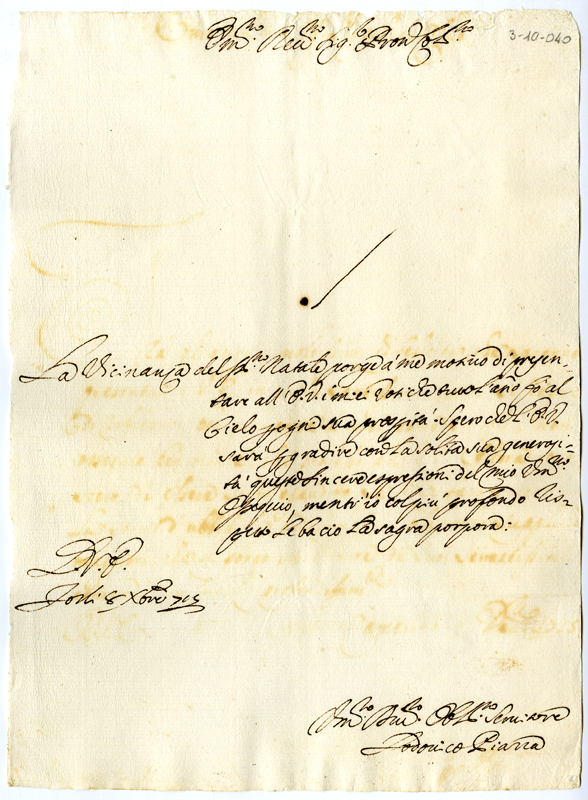 3-10-040
Em.mo Rev.mo Sig.r Pron Col.mo
La Vicinanza del S.mo Natale porge à me motiuo di presen-
tare all' E.V. i miei Voti che tutto l'año fò al
Cielo p ogni sua prosp̃ità. Spero che l' E.V.
sarà p gradire con la solita sua generosi-
tà queste sincere espressioni del mio Um.mo
Ossequio, mentr' io col più profondo Ris-
petto le bacio la sagra porpora:
D. V. E.
Forlì 8 Xbre 715
Um.mo Deu.mo Obl.mo Seruitore
Lodouico Piazza